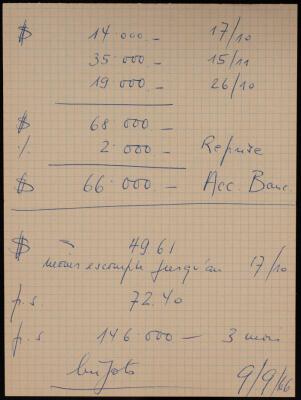 $ 14 000 – 17/10
35 000 – 15/11
19 000 – 26/10
$ 68 000 –
% 2 000 – Reprise
$ 66 000 – Acc. Banc.
$ 4961
moins escompte jusqu'au 17/10
f.s. 72.40
f.s. 146 000 – 3 mois
9/9/66